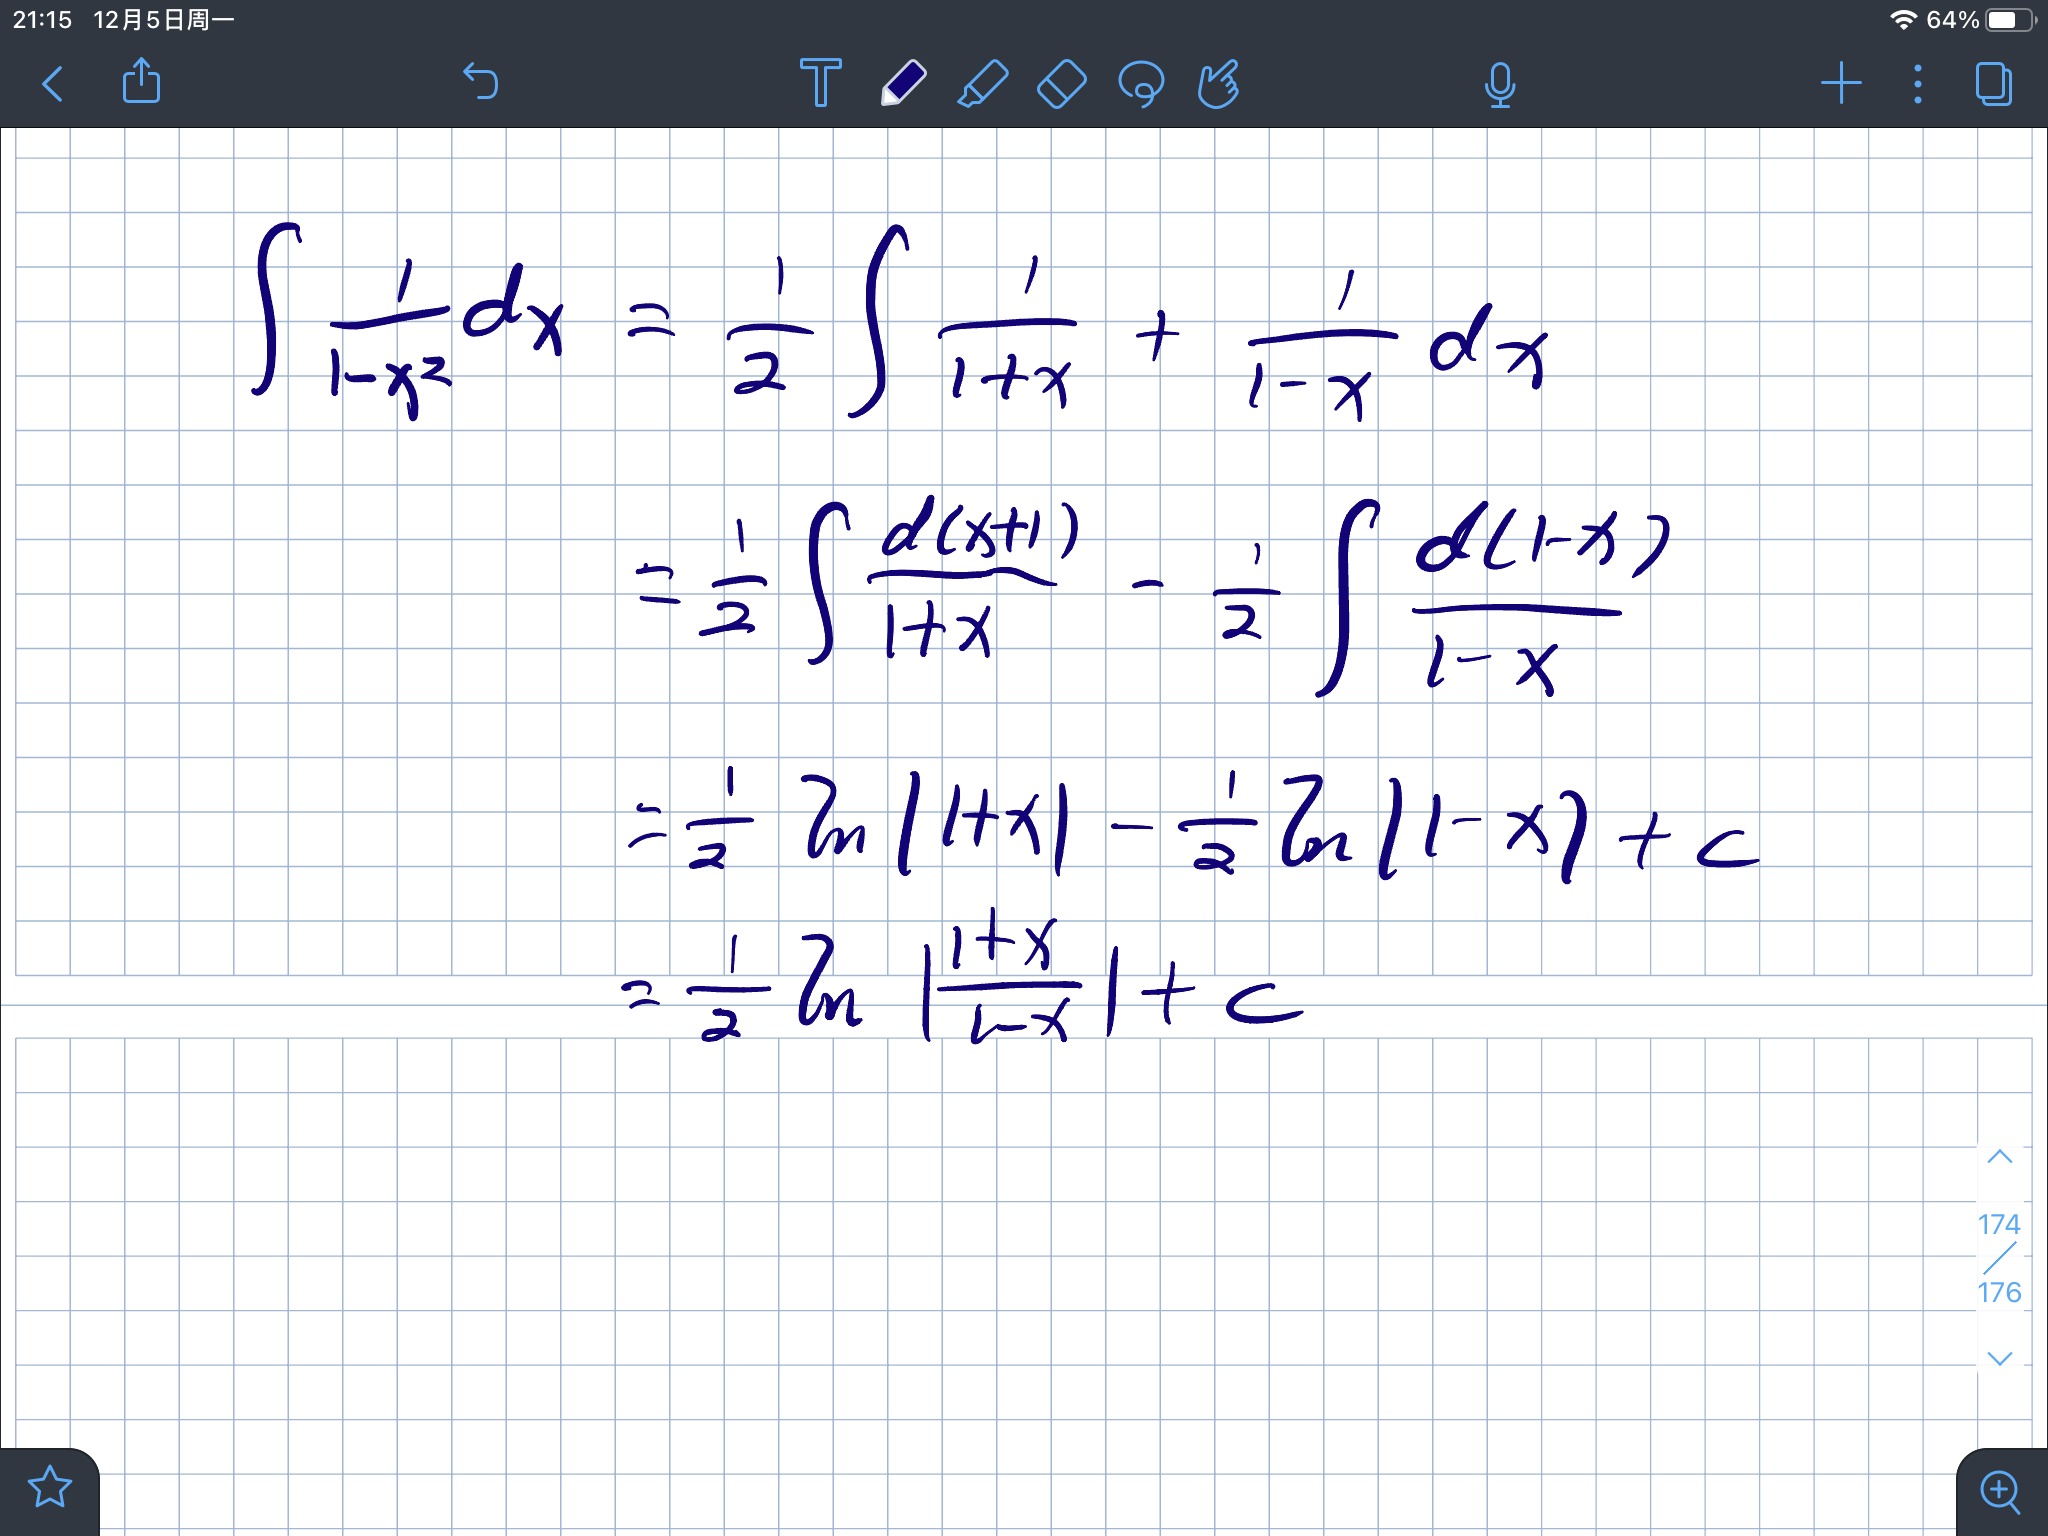 21:15 12月5日周一 64%
∫ 1/(1-x²) dx = 1/2 ∫ 1/(1+x) + 1/(1-x) dx
= 1/2 ∫ d(x+1)/(1+x) - 1/2 ∫ d(1-x)/(1-x)
= 1/2 ln|1+x| - 1/2 ln|1-x| + c
= 1/2 ln |(1+x)/(1-x)| + c
174
/
176